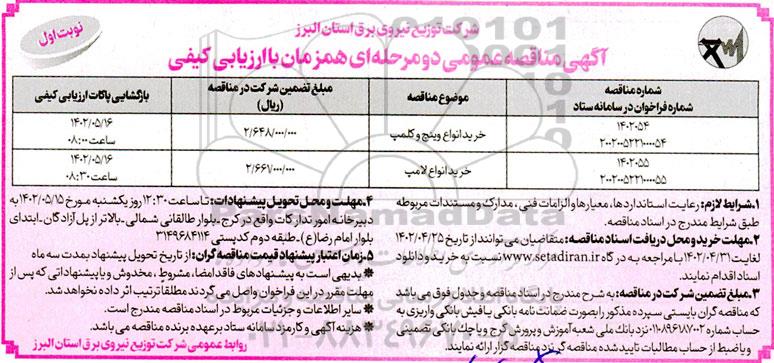 شرکت توزیع نیروی برق استان البرز
نوبت اول
آگهی مناقصه عمومی دو مرحله‌ای همزمان با ارزیابی کیفی
شماره مناقصه
شماره فراخوان در سامانه ستاد
موضوع مناقصه
مبلغ تضمین شرکت در مناقصه
(ریال)
بازگشایی پاکات ارزیابی کیفی
۱۴۰۲۰۵۴
۲۰۰۲۰۰۵۲۲۱۰۰۰۰۵۴
خرید انواع وینچ و کلمپ
۲/۶۴۸/۰۰۰/۰۰۰
۱۴۰۲/۰۵/۱۶
ساعت ۰۸:۰۰
۱۴۰۲۰۵۵
۲۰۰۲۰۰۵۲۲۱۰۰۰۰۵۵
خرید انواع لامپ
۲/۶۶۷/۰۰۰/۰۰۰
۱۴۰۲/۰۵/۱۶
ساعت ۰۸:۳۰
۱.شرایط لازم: رعایت استانداردها، معیارها و الزامات فنی ، مدارک و مستندات مربوطه
طبق شرایط مندرج در اسناد مناقصه.
۲.مهلت خرید و محل دریافت اسناد مناقصه: متقاضیان می‌توانند از تاریخ ۱۴۰۲/۰۴/۲۵
لغایت ۱۴۰۲/۰۴/۳۱ با مراجعه به درگاه www.setadiran.ir نسبت به خرید و دانلود
اسناد اقدام نمایند.
۳.مبلغ تضمین شرکت در مناقصه: به شرح مندرج در اسناد مناقصه و جدول فوق می باشد
که مناقصه گران بایستی سپرده مذکور را بصورت ضمانت نامه بانکی یا فیش بانکی واریزی به
حساب شماره ۰۱۱۰۸۹۶۱۸۷۰۰۲ نزد بانک ملی شعبه آموزش و پرورش کرج و یا چک بانکی تضمینی
و یا ضبط از حساب مطالبات تایید شده نزد مناقصه گزار ارائه نمایند.
۴.مهلت و محل تحویل پیشنهادات: تا ساعت ۱۲:۳۰ روز یکشنبه مورخ ۱۴۰۲/۰۵/۱۵ به
دبیرخانه امور تدارکات واقع در کرج ـ بلوار طالقانی شمالی ـ بالاتر از پل آزادگان ـ ابتدای
بلوار امام رضا (ع) ـ طبقه دوم کدپستی ۳۱۴۹۶۸۴۱۱۴
۵.زمان اعتبار پیشنهاد قیمت مناقصه گران: از تاریخ تحویل پیشنهاد بمدت سه ماه
* بدیهی است به پیشنهادهای فاقد امضا، مشروط ، مخدوش و یا پیشنهاداتی که پس از
مهلت مقرر در این فراخوان واصل می گردند مطلقا ترتیب اثر داده نخواهد شد.
* سایر اطلاعات و جزئیات مربوط در اسناد مناقصه مندرج است.
* هزینه آگهی و کارمزد سامانه ستاد بر عهده برنده مناقصه می باشد.
روابط عمومی شرکت توزیع نیروی برق استان البرز